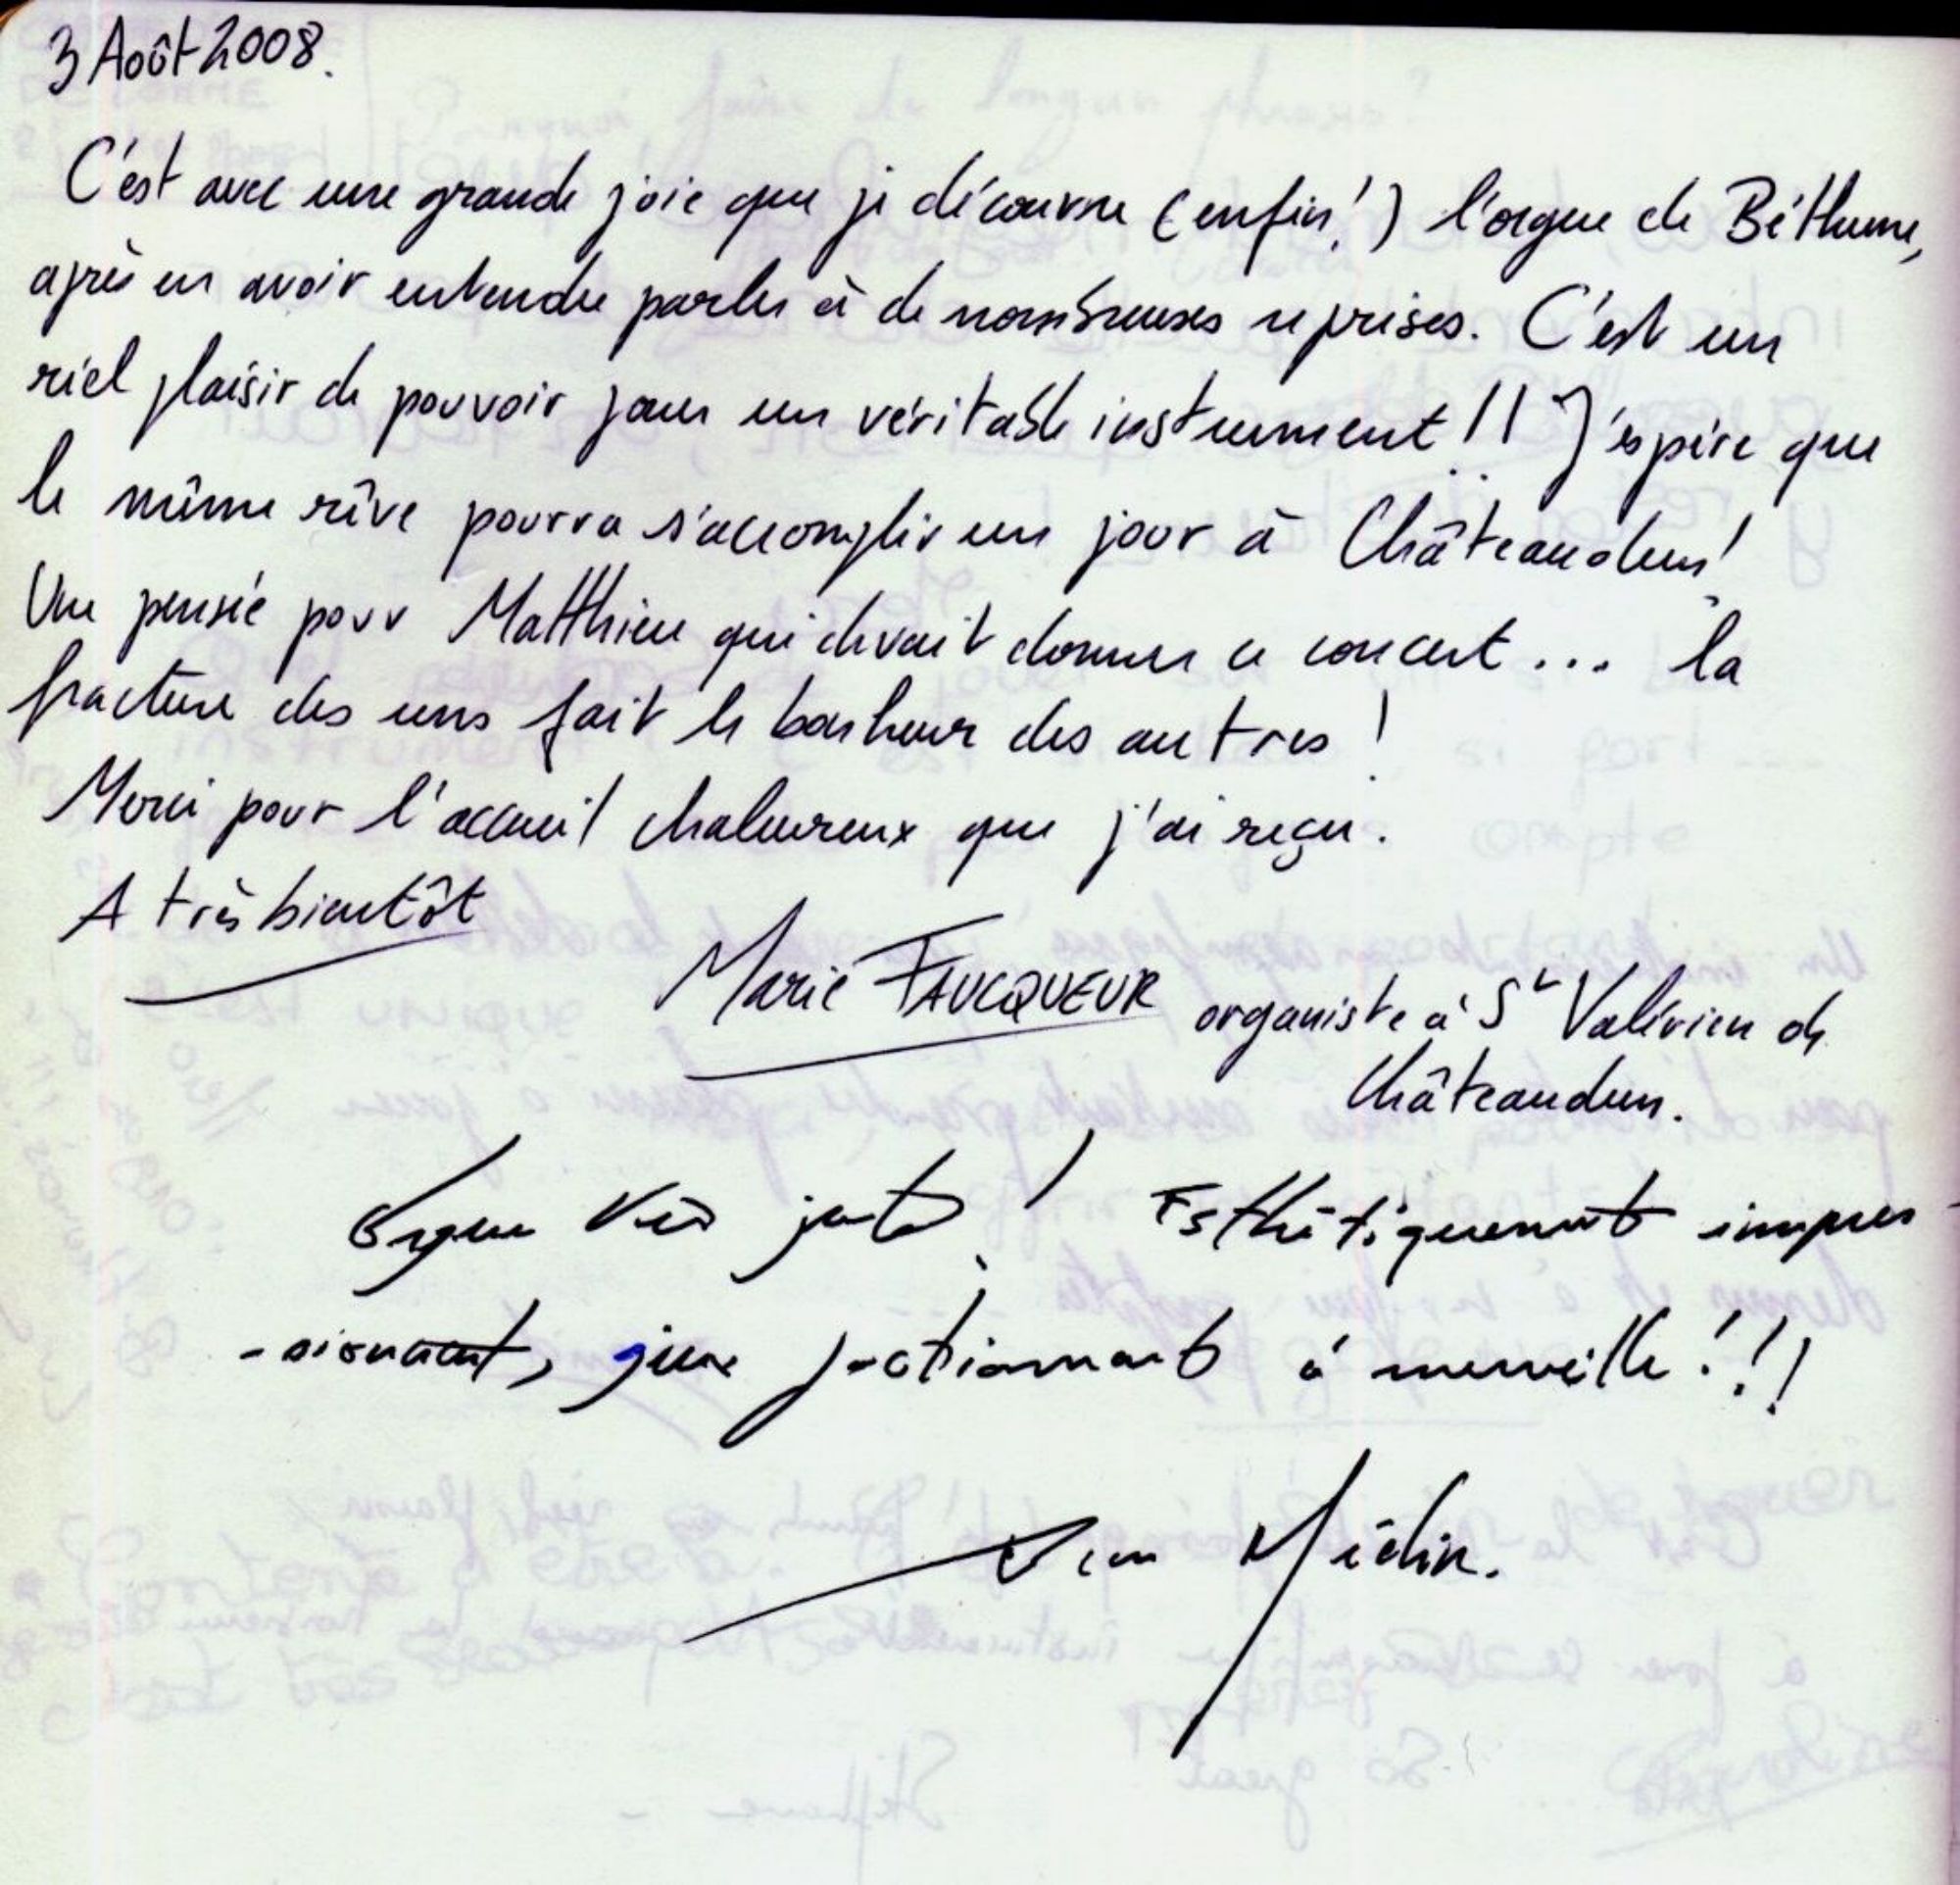 3 Août 2008.
C'est avec une grande joie que je découvre (enfin!) l'orgue de Béthune,
après en avoir entendu parler à de nombreuses reprises. C'est un
réel plaisir de pouvoir jouer un véritable instrument !! J'espère que
le même rêve pourra s'accomplir un jour à Châteaudun!
Une pensée pour Matthieu qui devait donner ce concert... la
fracture des uns fait le bonheur des autres !
Merci pour l'accueil chaleureux que j'ai reçu.
A très bientôt
Marie FAUCQUEUR organiste à St Valérien de
Châteaudun.
Orgue très ! Esthétiquement impres-
-sionnant, à merveille !!!